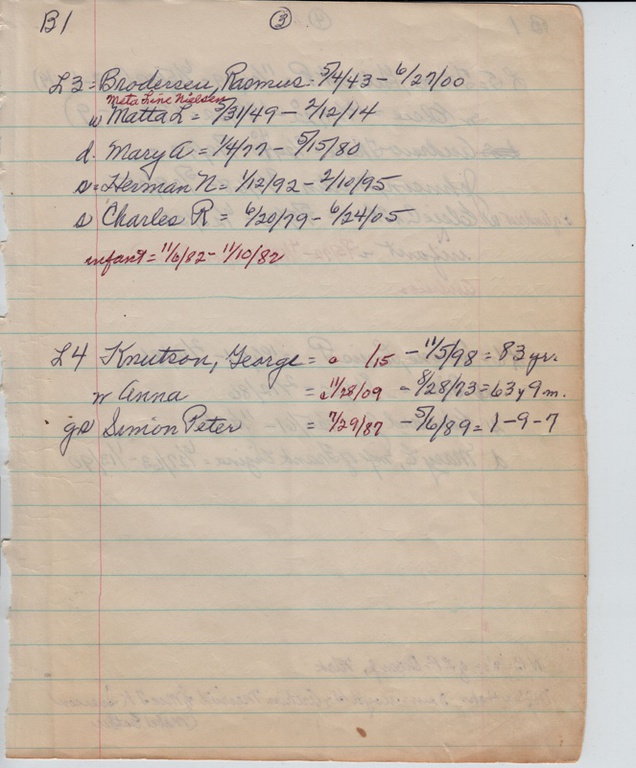 B1 3
L3 = Brodersen, Rasmus - 5/4/43 - 6/27/00
Meta Line Nielsen
w Matta L = 5/31/49 - 2/12/14
d. Mary A = 1/4/77 - 5/15/80
s = Herman N = 1/12/92 - 2/10/95
s Charles R = 6/20/79 - 6/24/05
infant = 11/6/82 - 11/10/82
L4 Knutson, George = c /15 - 11/5/98 = 83 yrs.
w Anna = c 11/28/09 - 8/28/73 = 63 y 9 m.
gs Simon Peter = 7/29/87 - 5/6/89 = 1-9-7